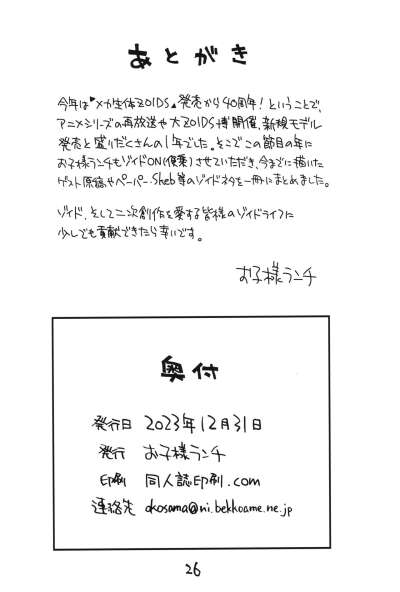 あとがき
今年は▶メカ生体ZOIDS◀発売から40周年！ということで、
アニメシリーズの再放送や大ZOIDS博開催、新規モデル
発売と盛りだくさんの1年でした。そこでこの節目の年に
お子様ランチもゾイドON(便乗)させていただき、今までに描いた
ゲスト原稿やペーパー、Skeb等のゾイドネタを一冊にまとめました。
ゾイド、そして二次創作を愛する皆様のゾイドライフに
少しでも貢献できたら幸いです。
お子様ランチ
奥付
発行日 2023年12月31日
発行 お子様ランチ
印刷 同人誌印刷.com
連絡先 okosama@ni.bekkoame.ne.jp
26